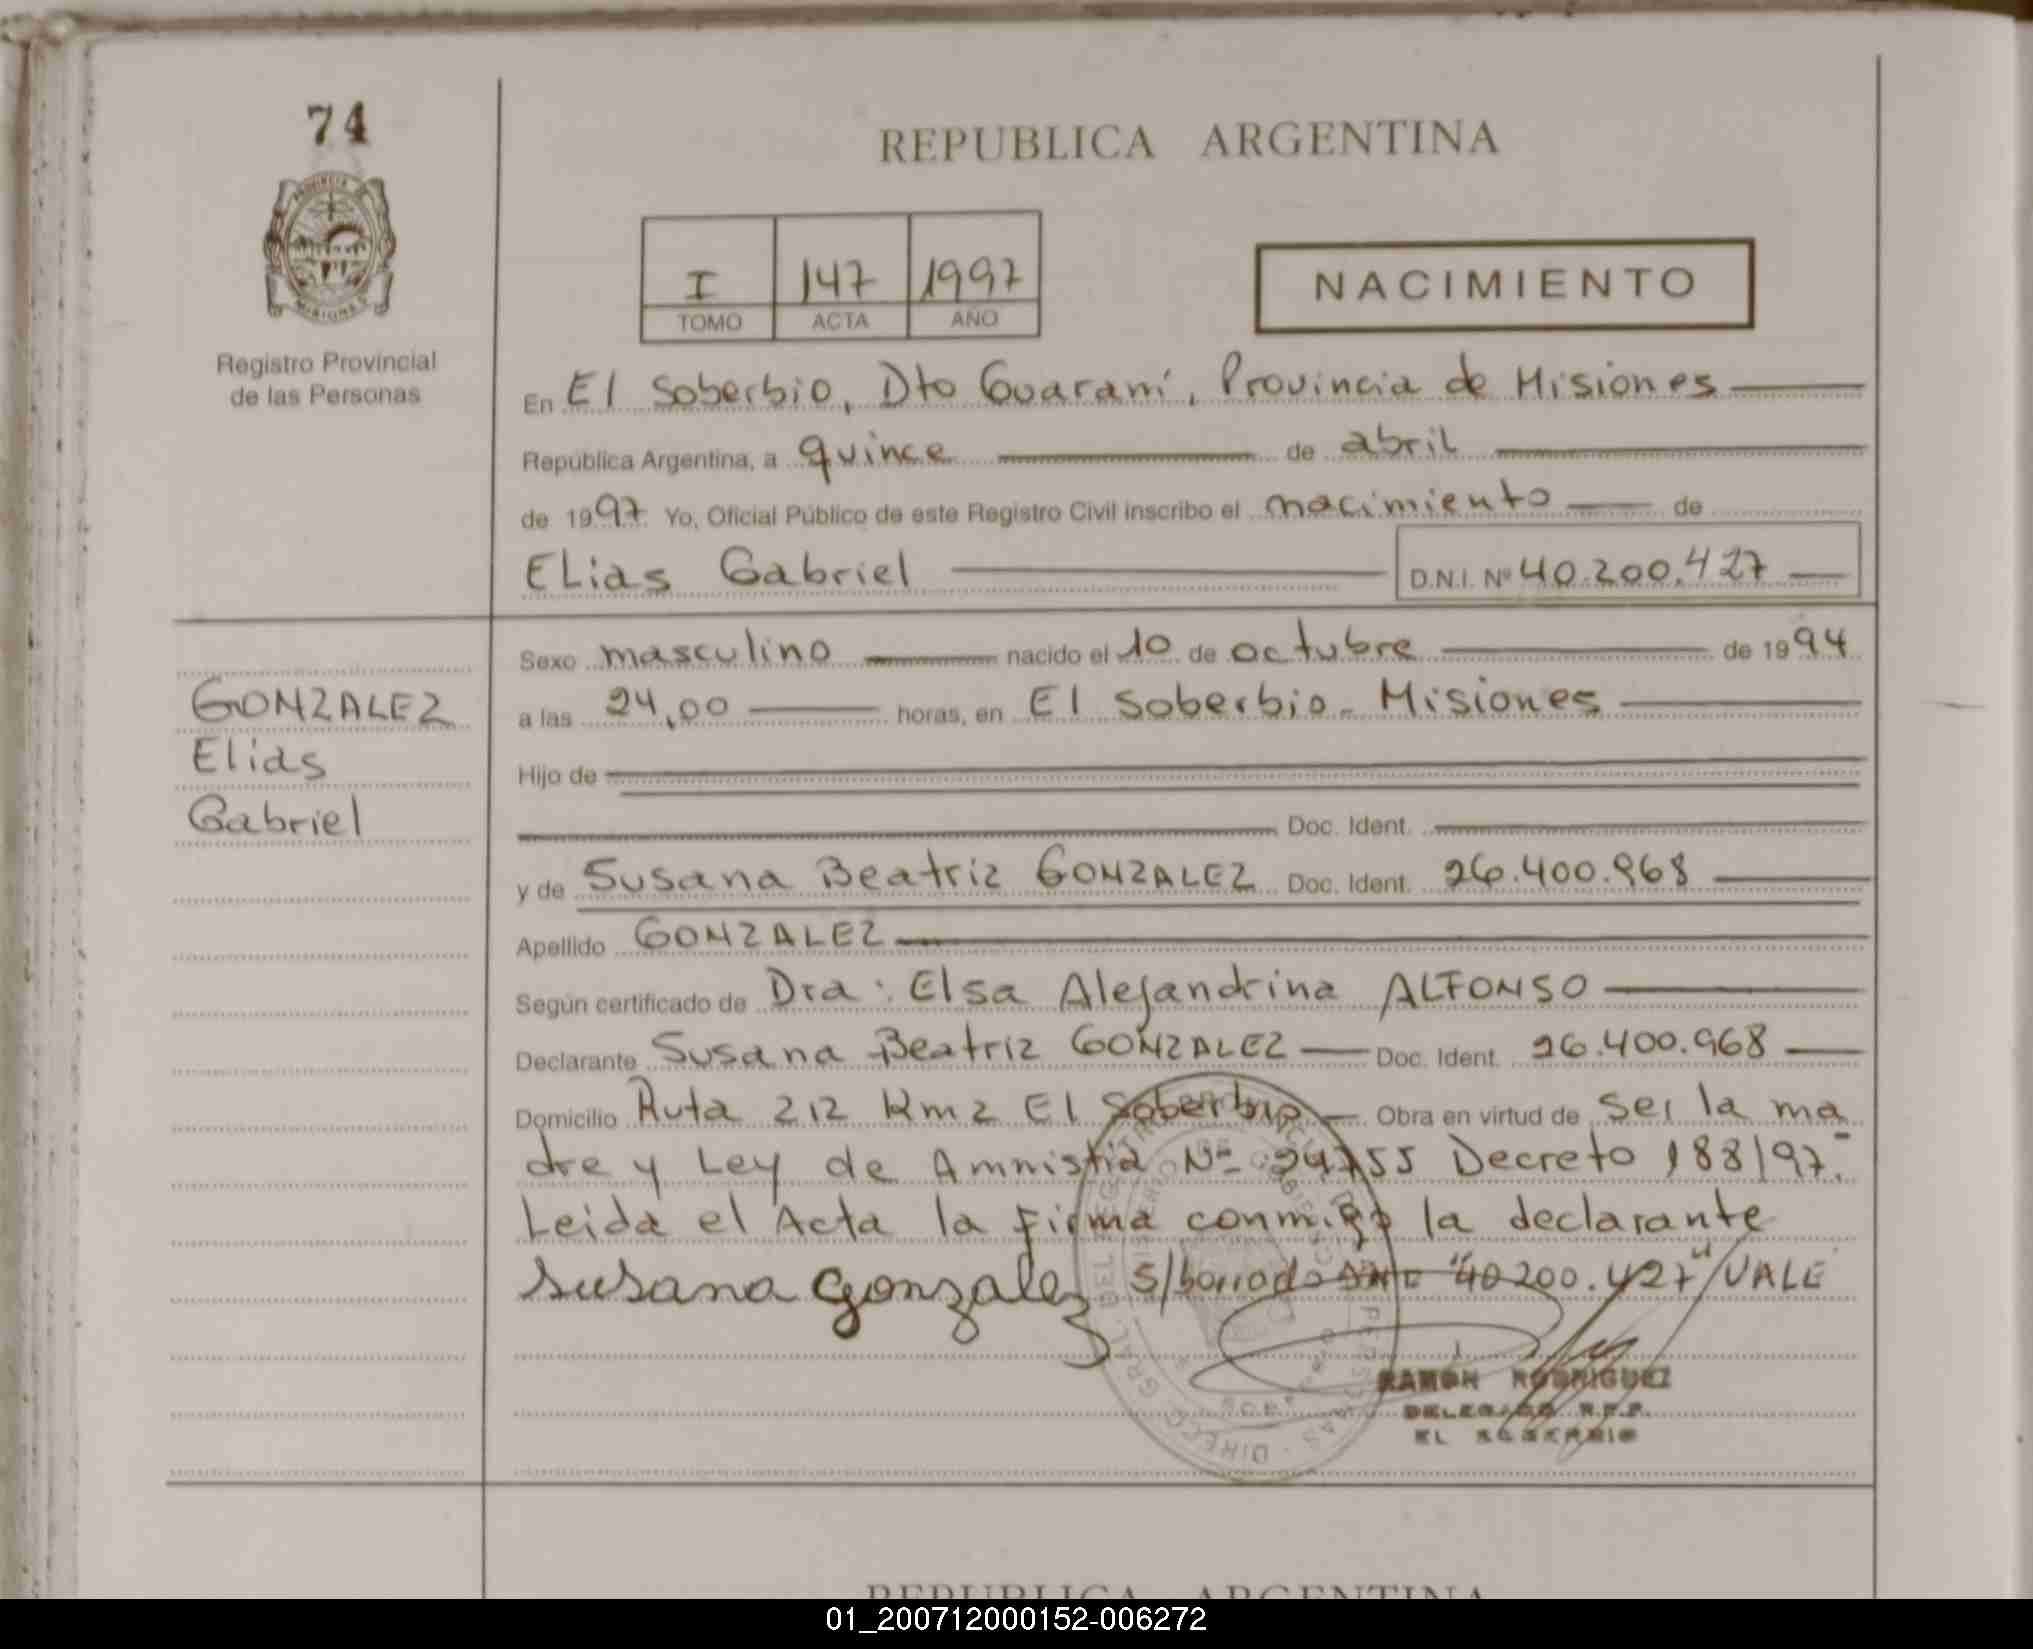 74
REPUBLICA ARGENTINA
I 147 1997
TOMO ACTA AÑO
NACIMIENTO
Registro Provincial
de las Personas
En El Soberbio, Dto Guaraní, Provincia de Misiones
República Argentina, a quince de abril
de 1997. Yo, Oficial Público de este Registro Civil inscribo el nacimiento de
Elias Gabriel D.N.I. Nº 40.200.427
Sexo masculino nacido el 10 de octubre de 1994
a las 24,00 horas, en El Soberbio - Misiones
GONZALEZ
Elias
Gabriel
Hijo de
Doc. Ident.
y de Susana Beatriz GONZALEZ Doc. Ident. 26.400.968
Apellido GONZALEZ
Según certificado de Dra: Elsa Alejandrina ALFONSO
Declarante Susana Beatriz GONZALEZ Doc. Ident. 26.400.968
Domicilio Ruta 212 Km 2 El Soberbio Obra en virtud de Ser la ma
dre y Ley de Amnistia Nº 24755 Decreto 188/97.-
Leida el Acta la firma conmigo la declarante
Susana Gonzalez S/borrado "40200.427" VALE
RAMON RODRIGUEZ
DELEGADO R.P.P.
EL SOBERBIO
REPUBLICA ARGENTINA
01_200712000152-006272